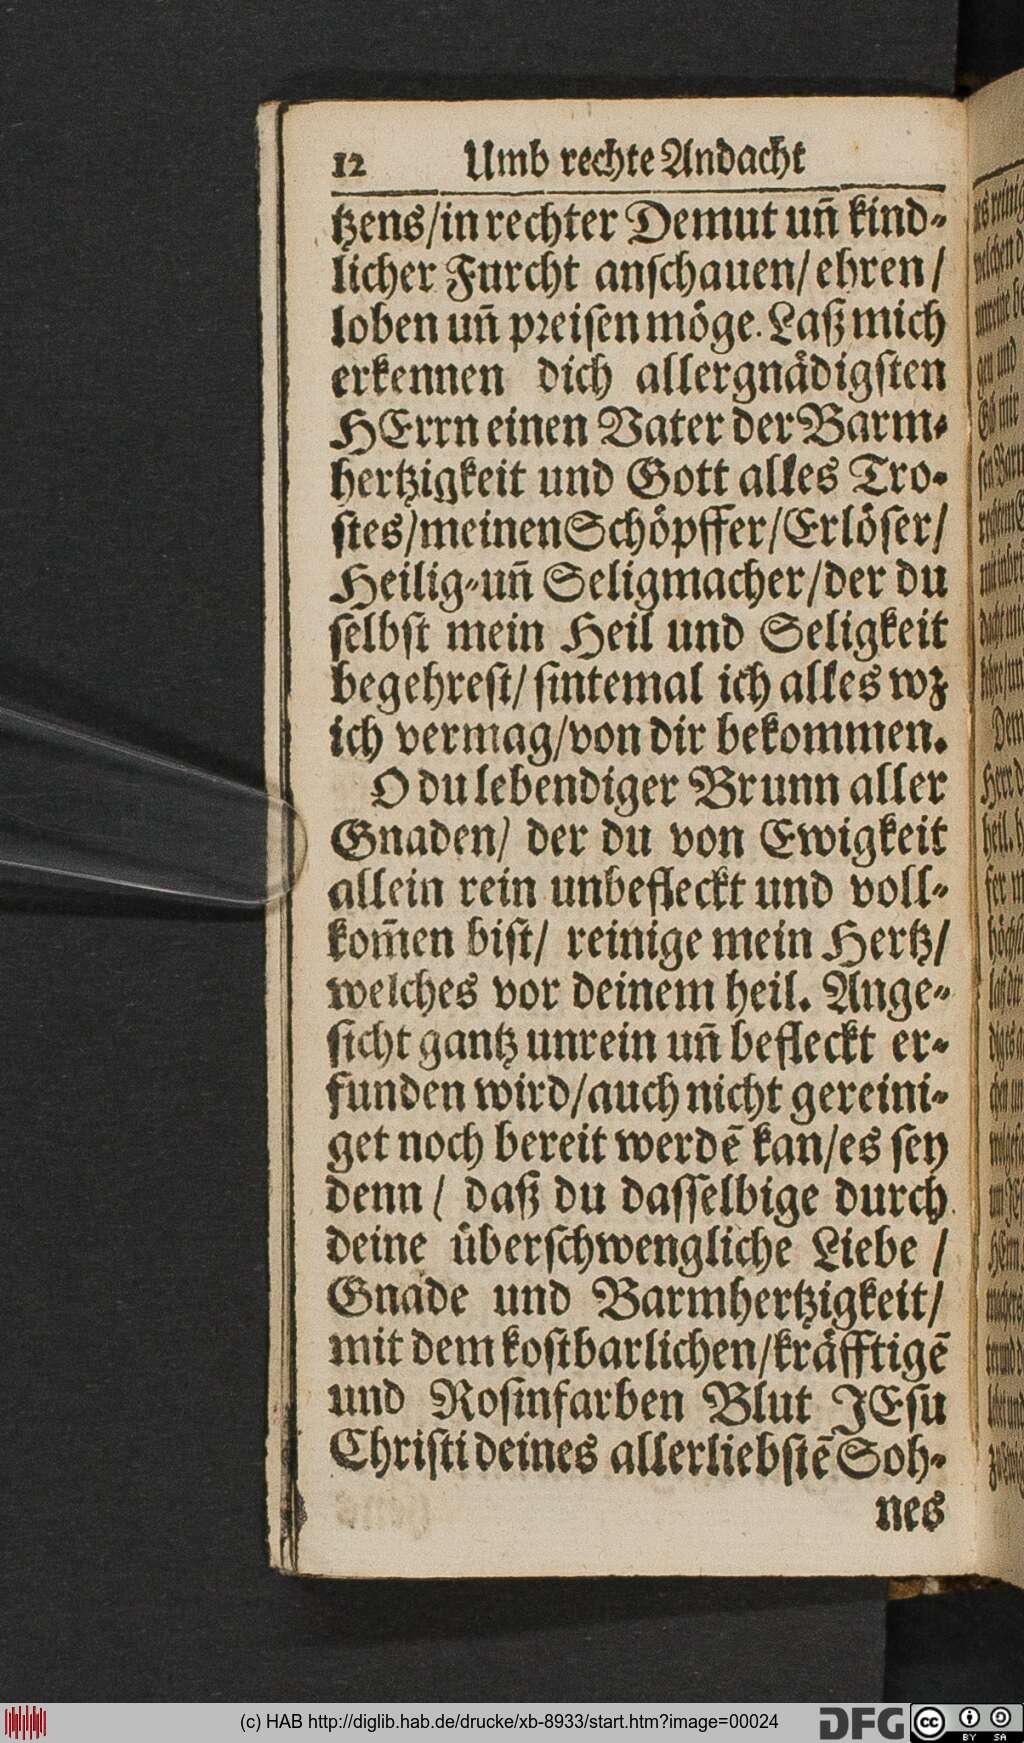 12 Umb rechte Andacht
tzens/in rechter Demut uñ kind-
licher Furcht anschauen/ehren/
loben uñ preisen möge. Laß mich
erkennen dich allergnädigsten
HErrn einen Vater der Barm-
hertzigkeit und Gott alles Tro-
stes/meinen Schöpffer/Erlöser/
Heilig-uñ Seligmacher/der du
selbst mein Heil und Seligkeit
begehrest/sintemal ich alles wz
ich vermag/von dir bekommen.
O du lebendiger Brunn aller
Gnaden/ der du von Ewigkeit
allein rein unbefleckt und voll-
kom̃en bist/ reinige mein Hertz/
welches vor deinem heil. Ange-
sicht gantz unrein uñ befleckt er-
funden wird/auch nicht gereini-
get noch bereit werdẽ kan/es sey
denn/ daß du dasselbige durch
deine überschwengliche Liebe/
Gnade und Barmhertzigkeit/
mit dem kostbarlichen/kräfftigẽ
und Rosinfarben Blut JEsu
Christi deines allerliebstẽ Soh-
nes
(c) HAB http://diglib.hab.de/drucke/xb-8933/start.htm?image=00024
DFG
cc BY SA